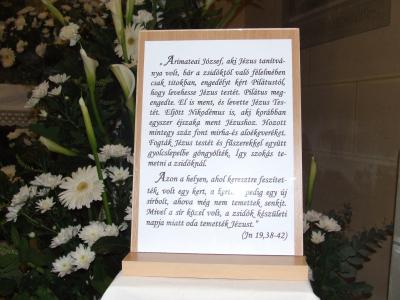 „Arimateai József, aki Jézus tanítvá-
nya volt, bár a zsidóktól való félelmében
csak titokban, engedélyt kért Pilátustól,
hogy levehesse Jézus testét. Pilátus meg-
engedte. El is ment, és levette Jézus Tes-
tét. Eljött Nikodémus is, aki korábban
egyszer éjszaka ment Jézushoz. Hozott
mintegy száz font mirha-és aloékeveréket.
Fogták Jézus testét és fűszerekkel együtt
gyolcslepelbe göngyölték, Így szokás te-
metni a zsidóknál.
Azon a helyen, ahol keresztre feszítet-
ték, volt egy kert, a pedig egy új
sírbolt, ahova még nem temettek senkit.
Mivel a sír közel volt, a zsidók készületi
napja miatt oda temették Jézust."
(Jn 19,38-42)